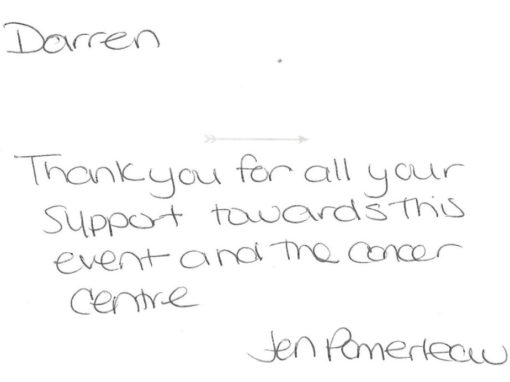 Darren
Thank you for all your
support towards this
event and the cancer
Centre
Jen Pomerleau